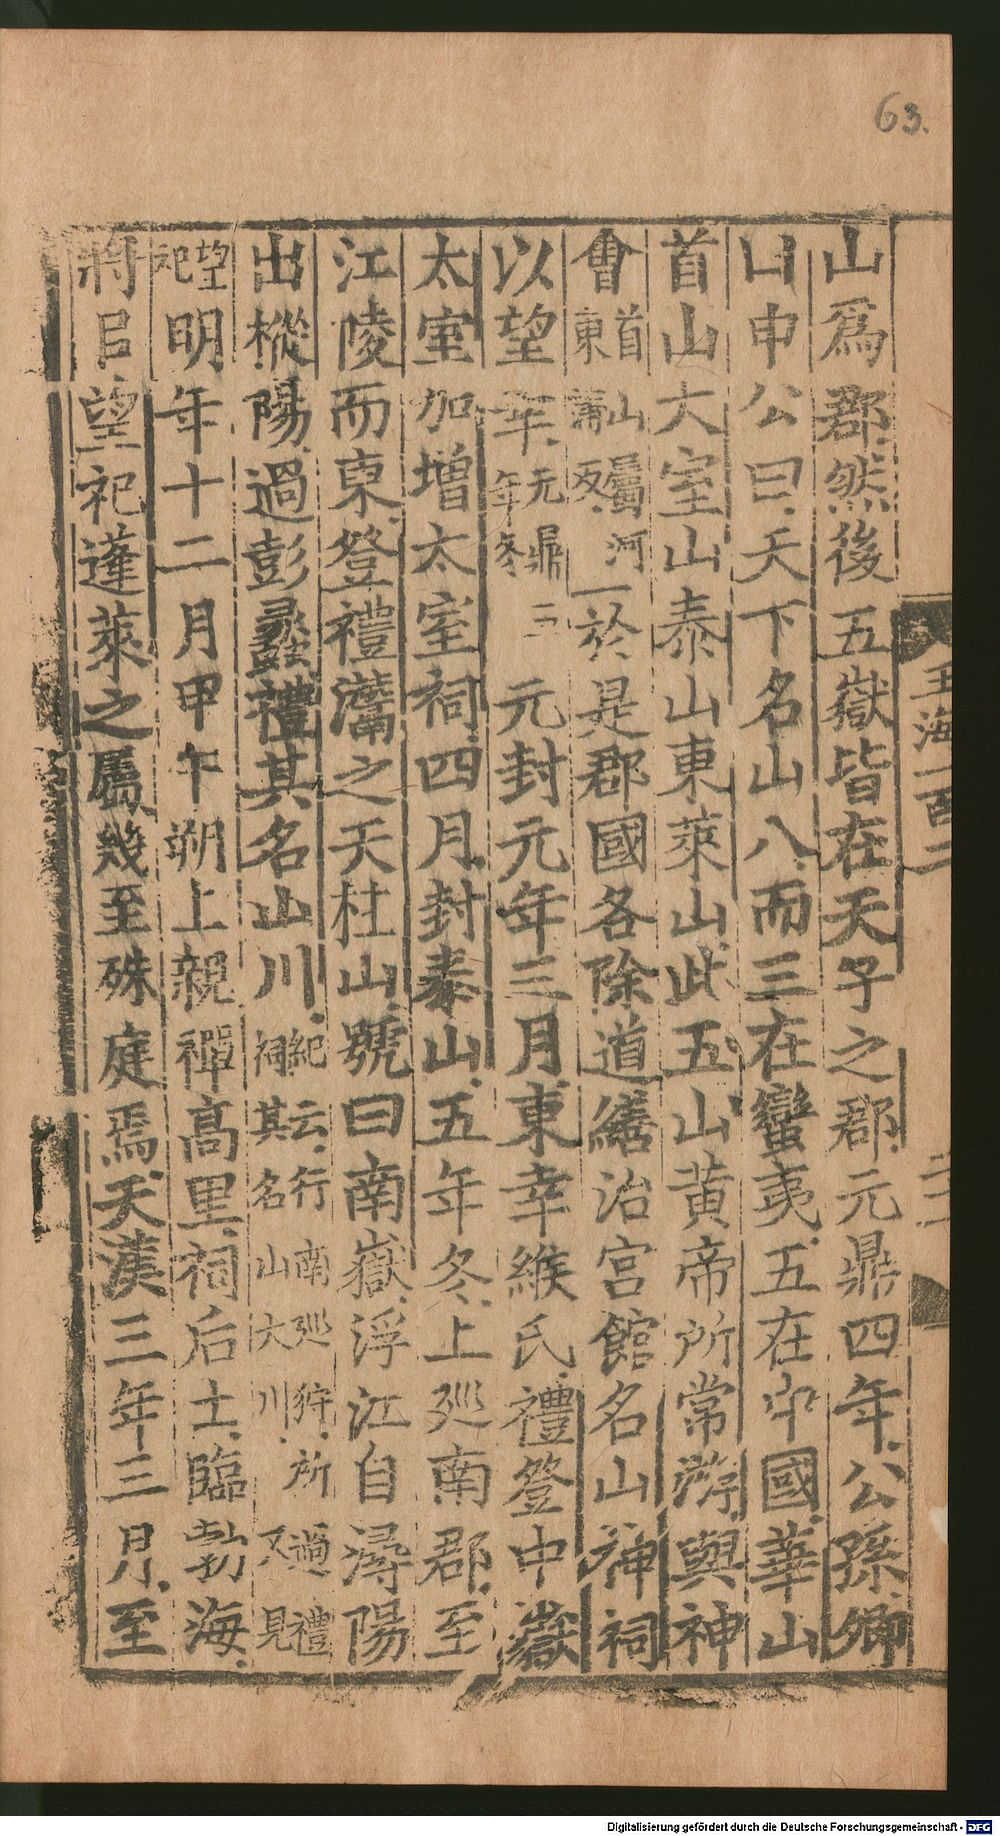 63.
玉海一百二
山爲郡然後五嶽皆在天子之郡元鼎四年公孫卿
曰申公曰天下名山八而三在蠻夷五在中國華山
首山大室山泰山東萊山此五山黄帝所常游與神
會首山屬河東蒲反一於是郡國各除道繕治宮館名山神祠
以望一年元鼎三年冬元封元年三月東幸緱氏禮登中嶽
太室加增太室祠四月封泰山五年冬上廵南郡至
江陵而東登禮灊之天柱山號曰南嶽浮江自潯陽
出樅陽過彭蠡禮其名山川紀云行南廵狩所過禮祠其名山大川又見
望祀明年十二月甲午朔上親禪高里祠后土臨勃海
將㠯望祀蓬萊之屬幾至殊庭焉天漢三年三月至
Digitalisierung gefördert durch die Deutsche Forschungsgemeinschaft - DFG